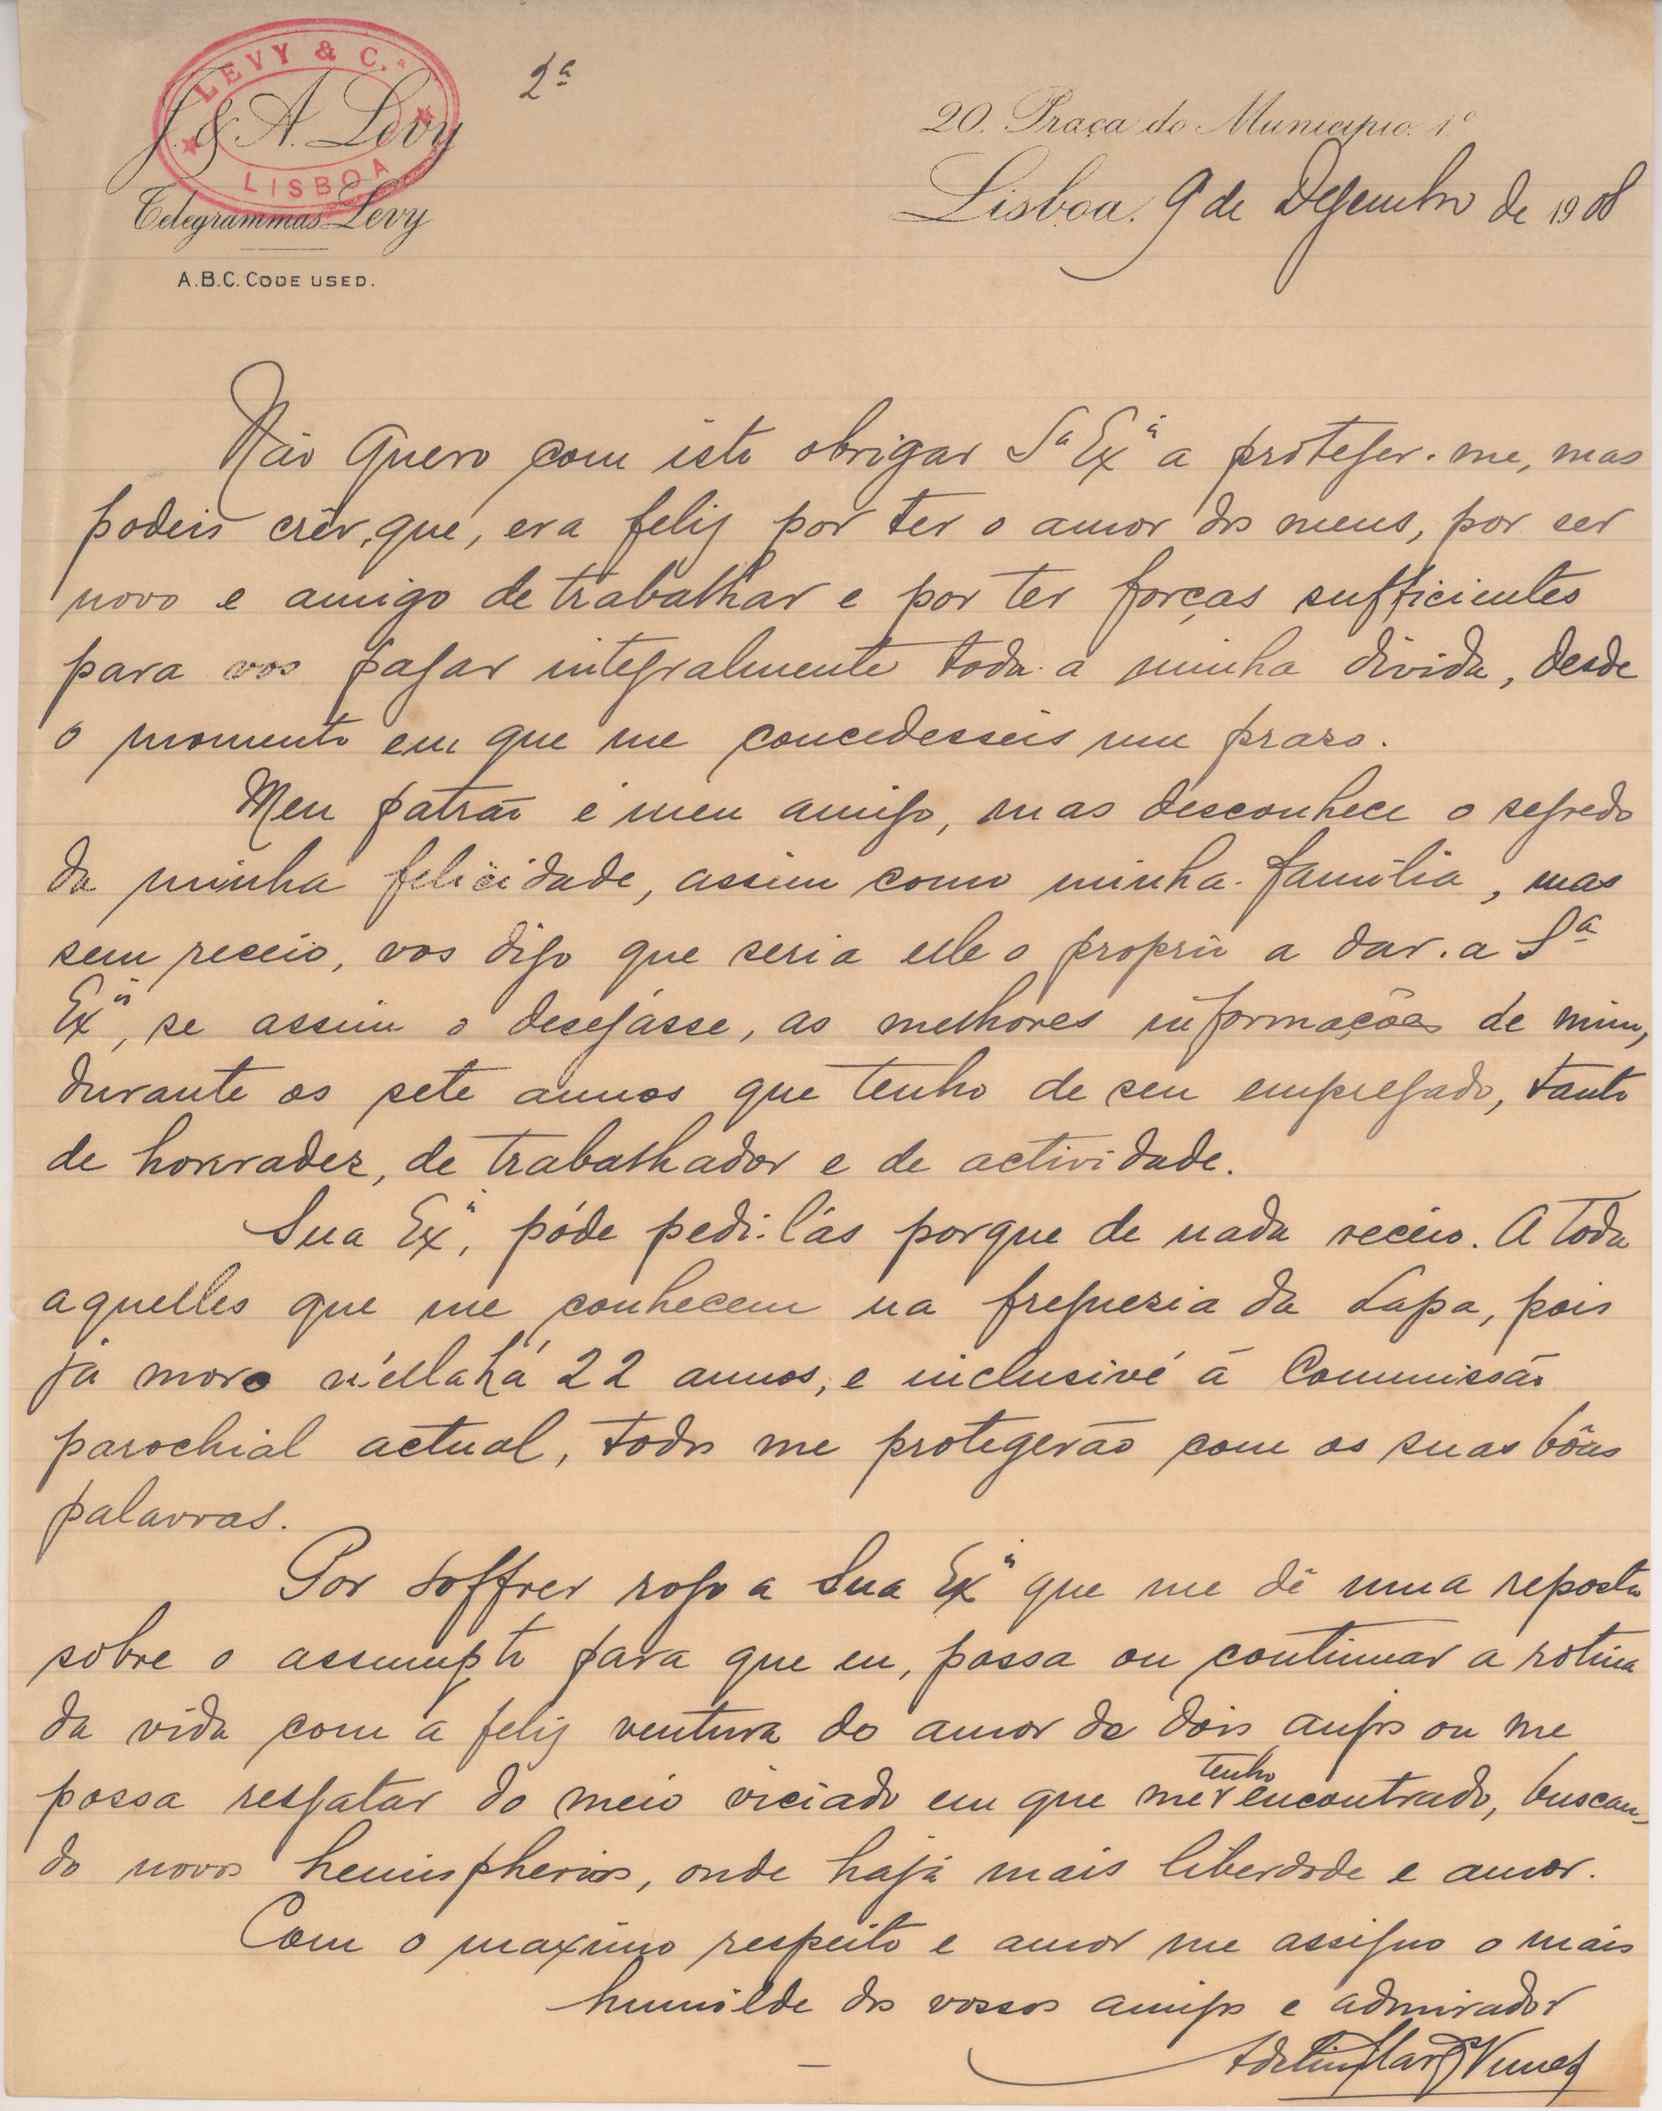 LEVY & C.ª
LISBOA
J. & A. Levy
Telegrammas Levy
A.B.C. CODE USED.
2ª
20. Praça do Municipio. 1º
Lisboa. 9 de Dezembro de 1908
Não quero com isto obrigar Sª Exª a proteger-me, mas
podeis crêr, que, era feliz por ter o amor dos meus, por ser
novo e amigo de trabalhar e por ter forças sufficientes
para vos pagar integralmente toda a minha divida, desde
o momento em que me concedesseis um praso.
Meu patrão é meu amigo, mas desconhece o segredo
da minha felicidade, assim como minha familia, mas
sem receio, vos digo que seria elle o proprio a dar a Sª
Exª, se assim o desejásse, as melhores informações de mim,
durante os sete annos que tenho de seu empregado, tanto
de honradez, de trabalhador e de actividade.
Sua Exª, póde pedi-lás porque de nada receio. A todo
aquelles que me conhecem na freguezia da Lapa, pois
já moro n'ella há 22 annos, e inclusivé á Commissão
parochial actual, todos me protegerão com as suas bôas
palavras.
Por soffrer rogo a Sua Exª que me dê uma reposta
sobre o assumpto para que eu, possa ou continuar a rotina
da vida com a feliz ventura do amor de dois anjos ou me
possa resgatar do meio viciado em que me tenho encontrado, buscan-
do novos hemispherios, onde haja mais liberdade e amor.
Com o maximo respeito e amor me assigno o mais
humilde dos vossos amigos e admirador
Nunes